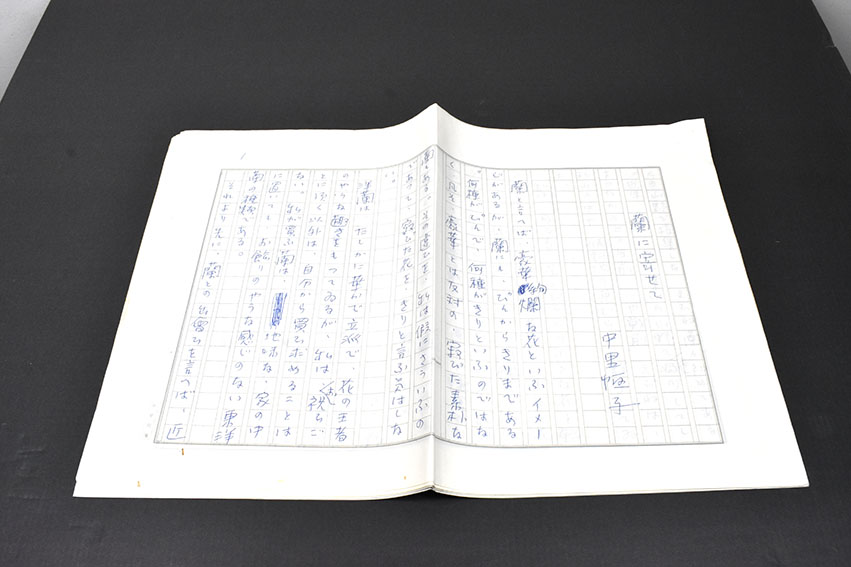 蘭に寄せて
中里恒子
蘭と言へば、豪華絢爛な花といふイメー
ジがあるが、蘭にも、ぴんからきりまである
。何種がぴんで、何種がきりといふのではな
く、凡そ、豪華とは反対の、寂びた素朴な
蘭もある。その違ひを、私は仮にさういふの
であつて、寂びた花を、きりと言ふ
い。
洋蘭は、たしかに華かで立派で、花の王者
のやうな趣きをもつてゐるが、私は、祝ひご
とに頂く以外は、自分から買ひ求めることは
ない。私が買ふ蘭は、地味な、家の中
に置いても、お飾りのやうな感じのない東洋
蘭の種類である。
それより先い、蘭との出会ひを言へば、近